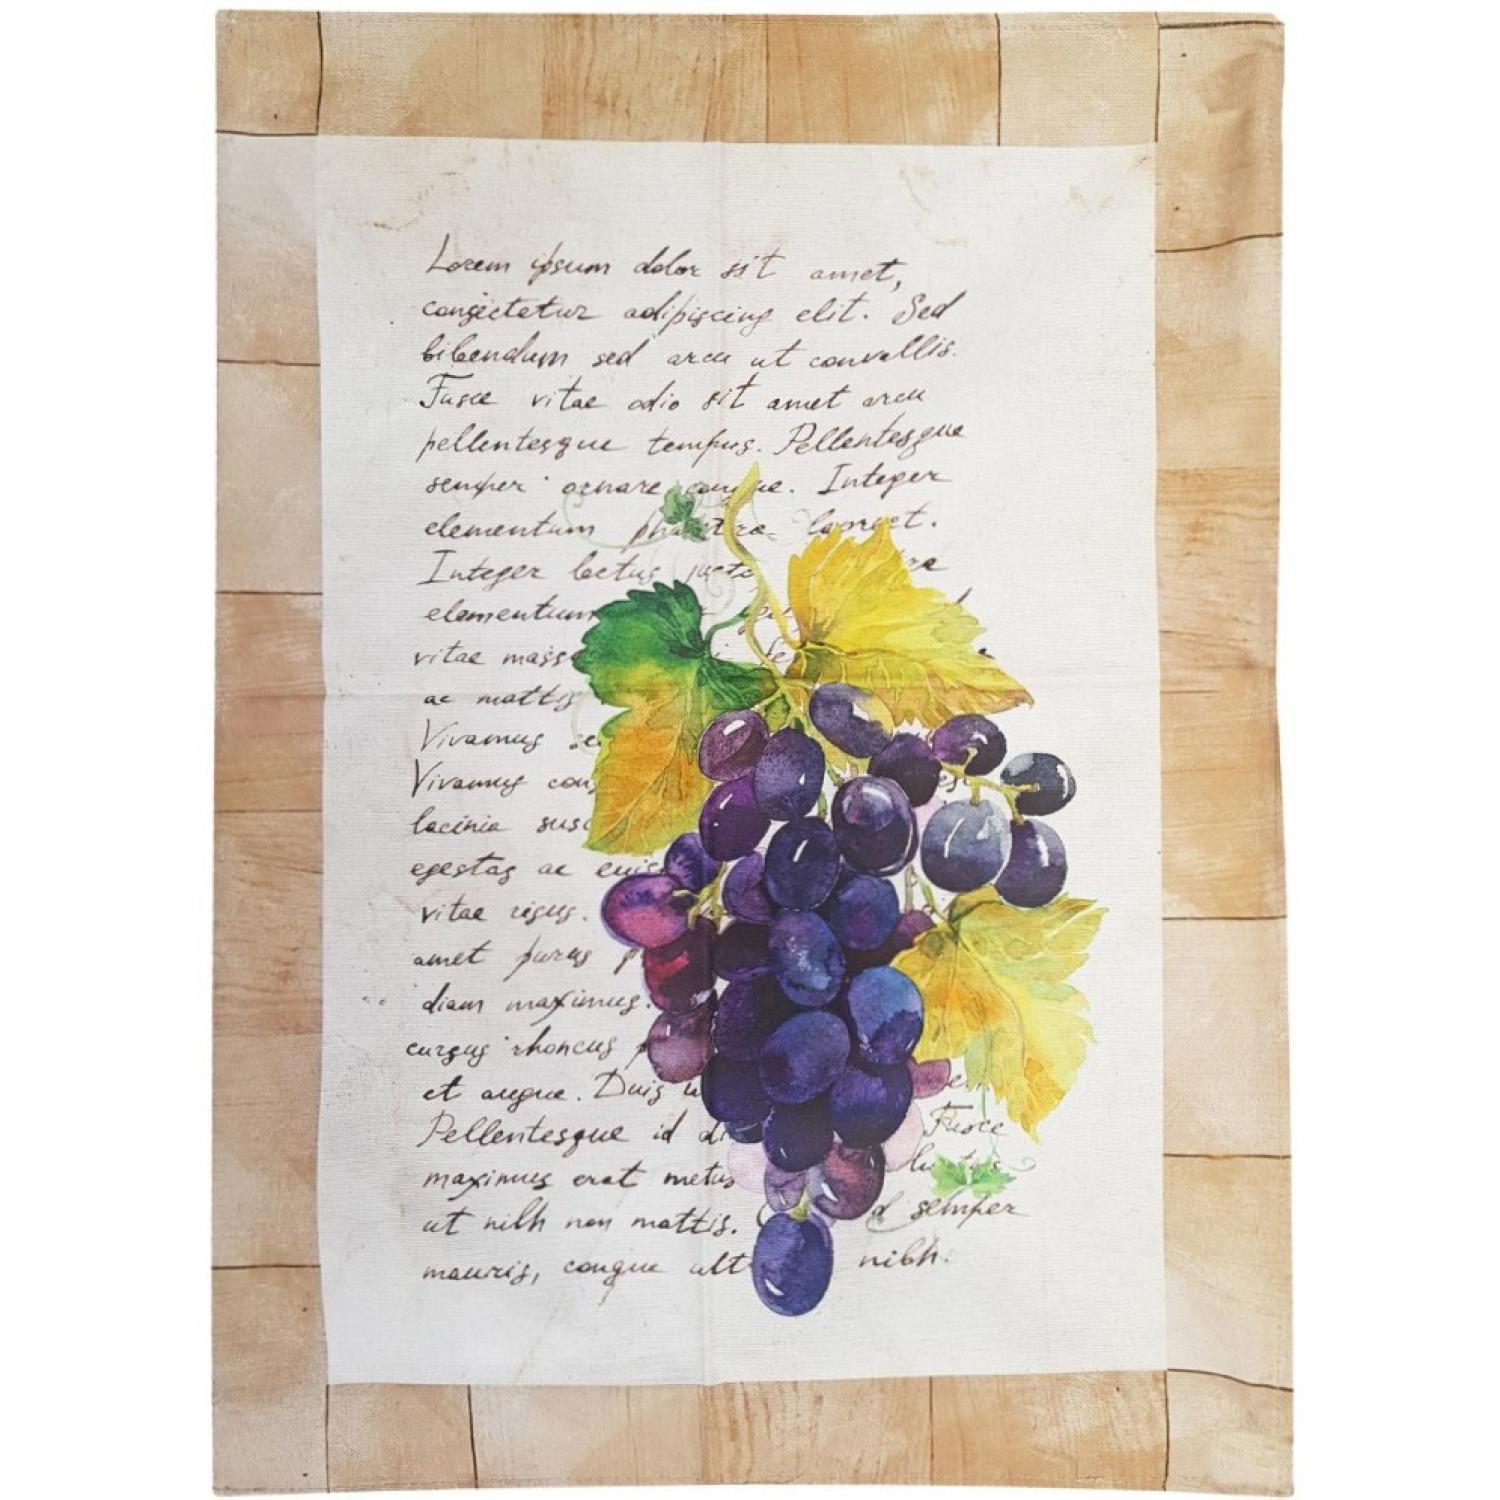 Lorem ipsum dolor sit amet,
consectetur adipiscing elit. Sed
bibendum sed arcu ut convallis.
Fusce vitae odio sit amet arcu
pellentesque tempus. Pellentesque
semper ornare congue. Integer
elementum pharetra laoreet.
Integer lectus justo
elementum
vitae mass
ac mattis
Vivamus
Vivamus con
lacinia susc
egestas ac euis
vitae risus.
amet purus p
diam maximus.
cursus rhoncus
et augue. Duis
Pellentesque id di Fusce
maximus erat metus luctus
ut nibh non mattis. d semper
mauris, congue ult nibh.